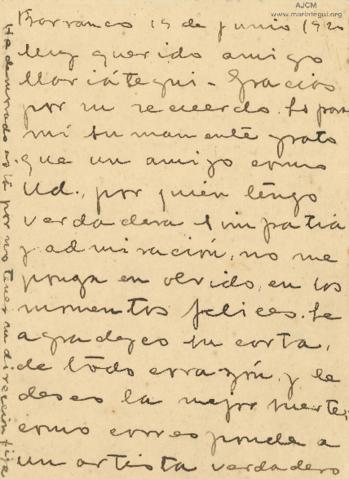 AJCM
www.mariategui.org
Barranco 15 de junio 1920
Muy querido amigo
Mariátegui - Gracias
por su recuerdo. Es para
mí sumamente grato
que un amigo como
Ud., por quien tengo
verdadera simpatía
y admiración, no me
ponga en olvido, en los
momentos felices. Le
agradezco su carta,
de todo corazón, y le
deseo la mejor suerte;
como corresponde a
un artista verdadero
He demorado por no tener su dirección fija